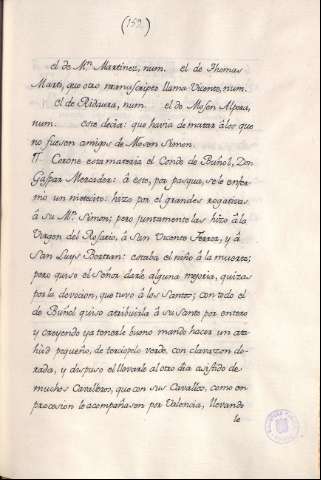 (152)
el de Mn. Martinez, num. el de Thomas
Marti, que otro manuscripto llama Vicente, num.
el de Ridaura, num. el de Mosen Alpera,
num. este decia: que havia de matar â los que
no fuesen amigos de Mosen Simon.
¶ Corone esta materia el Conde de Buñol, Don
Gaspar Mercader: â esto, por pasqua, se le enfer-
mo un nietecito: hizo por el grandes rogativas
â su Mn. Simon; pero juntamente las hizo â la
Virgen del Rosario, â San Vicente Ferrer, y â
San Luys Bertran: estaba el niño â la muerte;
pero quiso el Señor darle alguna mejoria, quizas
por la devocion, que tuvo â los Santos; con todo el
de Buñol quiso atribuirla â su Santo por entero
y creyendo ya tenerle bueno mandò hacer un ata
hud pequeño, de terciopelo verde, con clavazon do-
rada, y dispuso el llevarle al otro dia asistido de
muchos Cavalleros, que con sus Cavallos, como en
procesion le acompañasen por Valencia, llevando
le